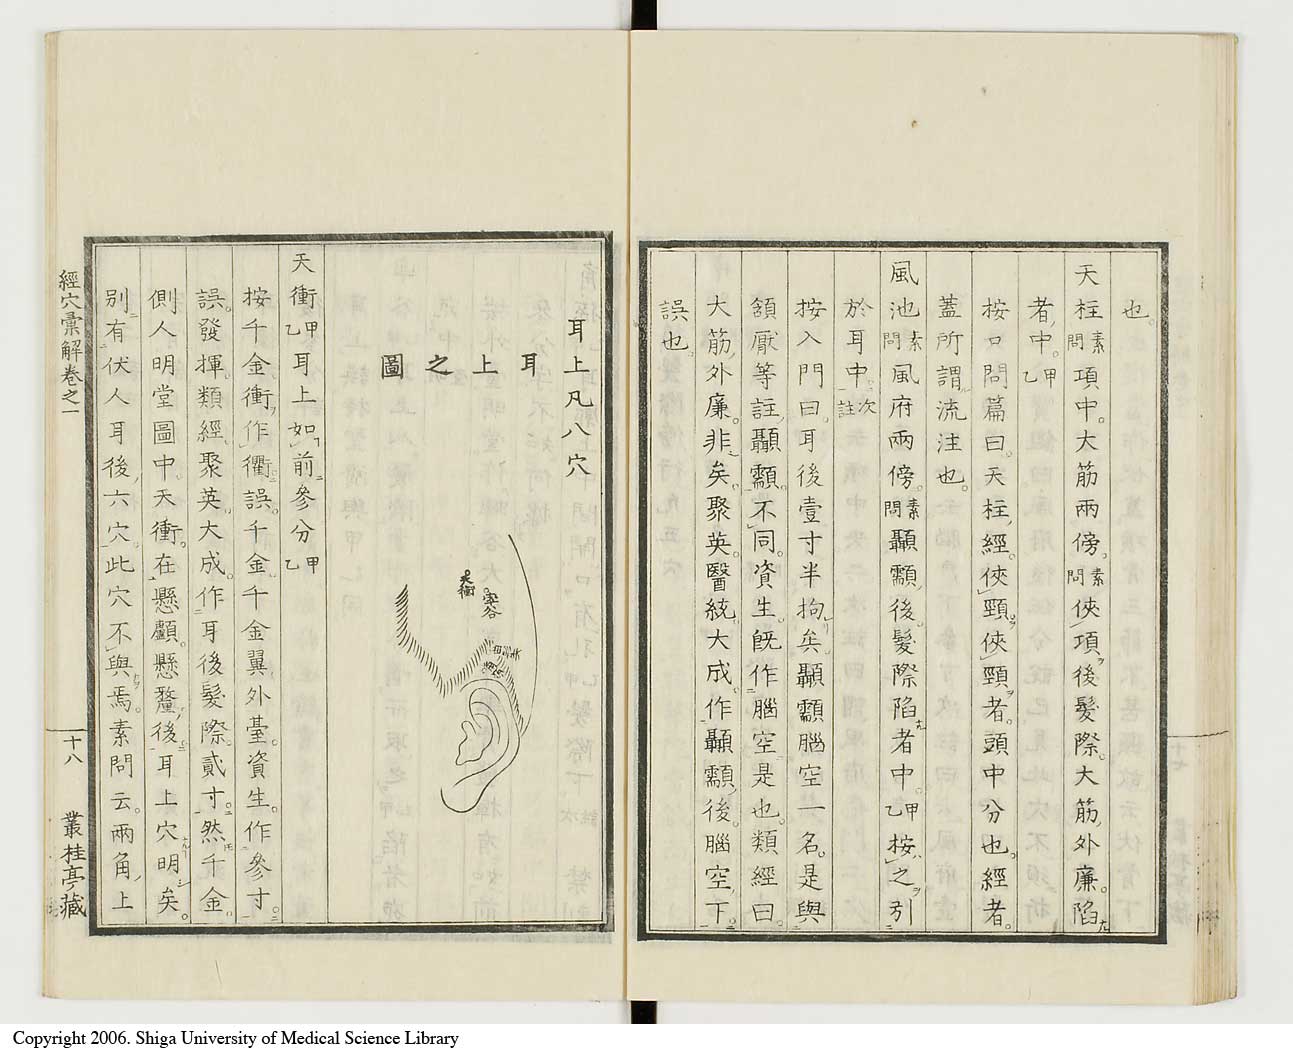 也
天柱素問項中大筋兩傍素問俠項後髮際大筋外廉陷
者中甲乙
按口問篇曰天柱經俠頸俠頸者頭中分也經者
蓋所謂流注也
風池素問風府兩傍素問顳顬後髮際陷者中甲乙按之引
於耳中次註
按入門曰耳後壹寸半拘矣顳顬腦空一名是與
頷厭等註顳顬不同資生旣作腦空是也類經曰
大筋外廉非矣聚英醫統大成作顳顬後腦空下
誤也
耳上凡八穴
耳上之圖
天衝
率谷
天衝甲乙耳上如前參分甲乙
按千金衝作衢誤千金千金翼外臺資生作參寸
誤發揮類經聚英大成作耳後髮際貳寸然千金
側人明堂圖中天衝在懸顱懸釐後耳上穴明矣
別有伏人耳後六穴此穴不與焉素問云兩角上
經穴彙解卷之一
十八
叢桂亭藏
Copyright 2006. Shiga University of Medical Science Library